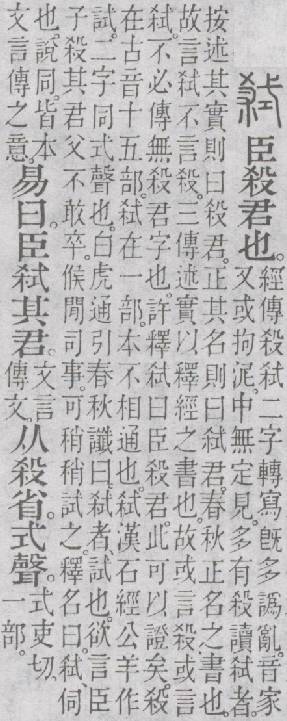 弑 臣殺君也。經傳殺弑二字轉寫旣多譌亂。音家
又或拘泥。中無定見。多有殺讀弑者。
按述其實則曰殺君。正其名則曰弑君。春秋正名之書也。
故言弑不言殺。三傳述實以釋經之書也。故或言殺或言
弑。不必傳無殺君字也。許釋弑曰臣殺君。此可以證矣。殺
在古音十五部。弑在一部。本不相通也。弑漢石經公羊作
試。二字同式聲也。白虎通引春秋讖曰。弑者、試也。欲言臣
子殺其君父不敢卒。候閒司事。可稍稍試之。釋名曰。弑、伺
也。說同。皆本
文言傳之意。易曰。臣弑其君。文言
傳文。从殺省。式聲。式吏切。
一部。